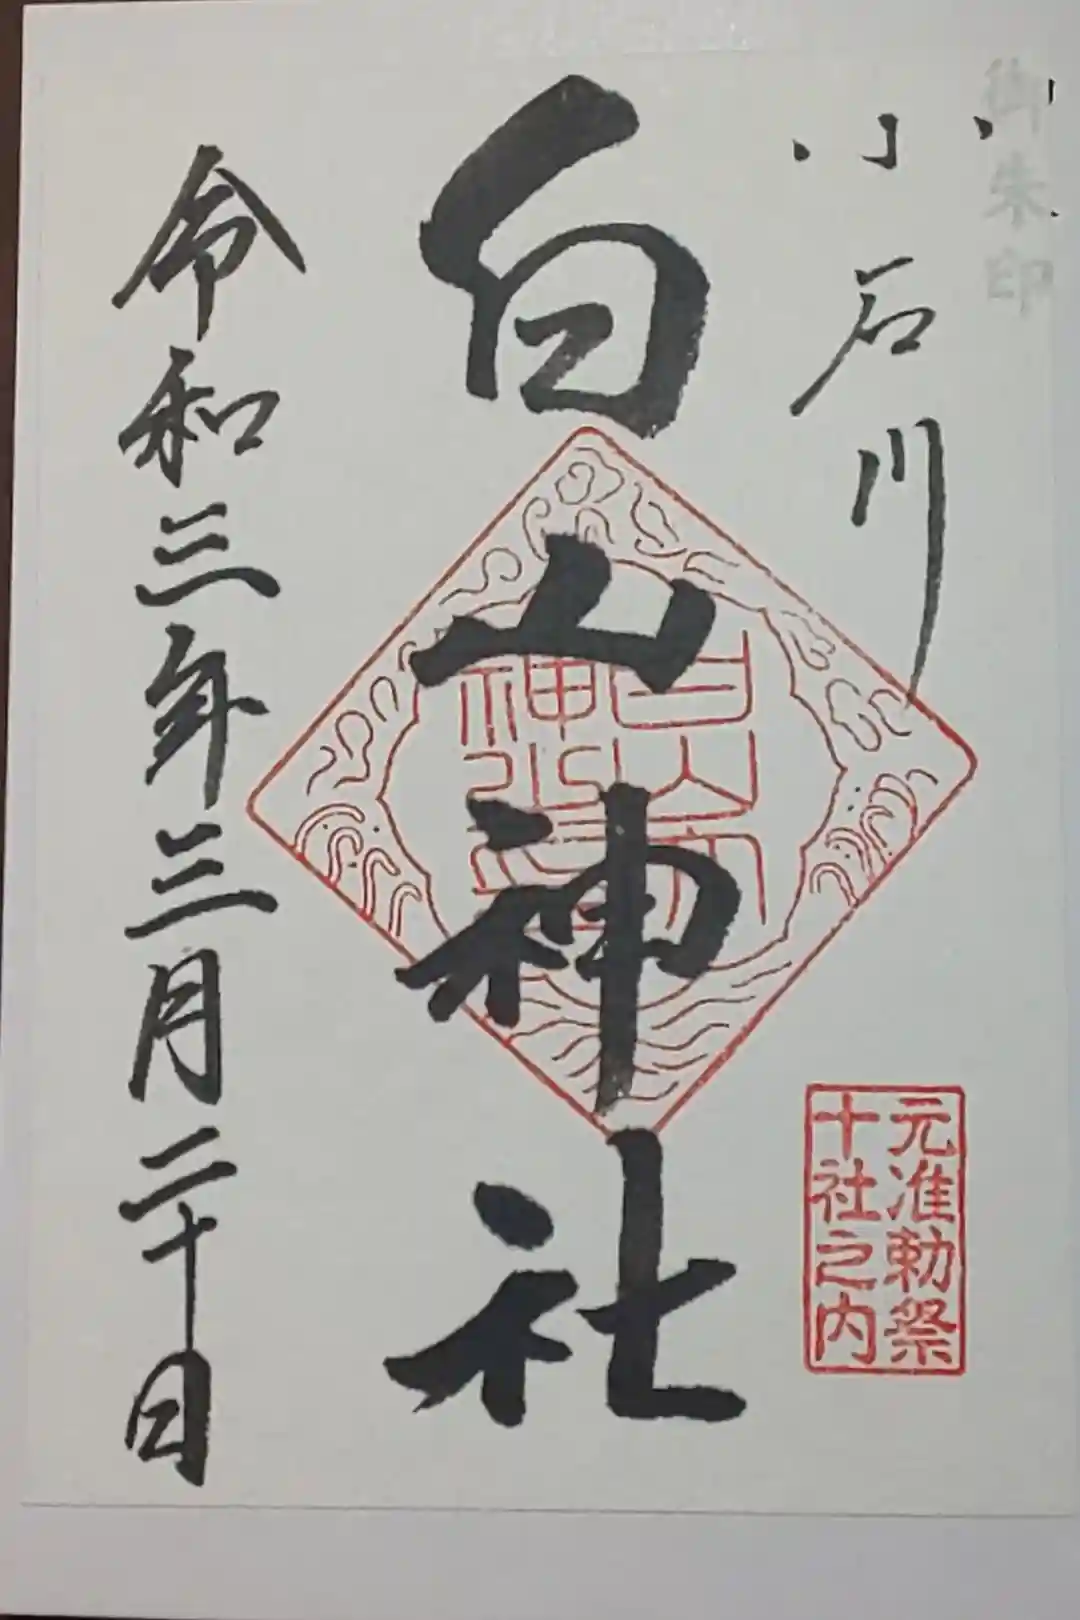 御朱印
小石川
白山神社
令和三年三月二十日
元准勅祭
十社之内